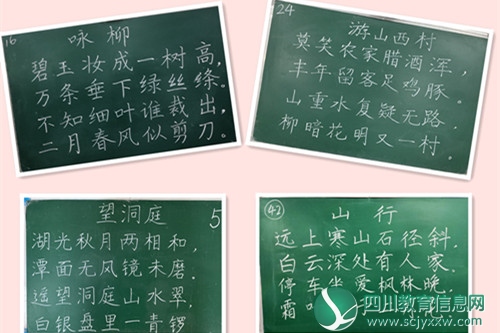 16
咏 柳
碧玉妆成一树高，
万条垂下绿丝绦。
不知细叶谁裁出，
二月春风似剪刀。
24
游山西村
莫笑农家腊酒浑，
丰年留客足鸡豚。
山重水复疑无路，
柳暗花明又一村。
望洞庭 5
湖光秋月两相和，
潭面无风镜未磨。
遥望洞庭山水翠，
白银盘里一青锣
42
山 行
远上寒山石径斜，
白云深处有人家。
停车坐爱枫林晚，
霜叶
四川教育信息网
www.scjyxxw.com